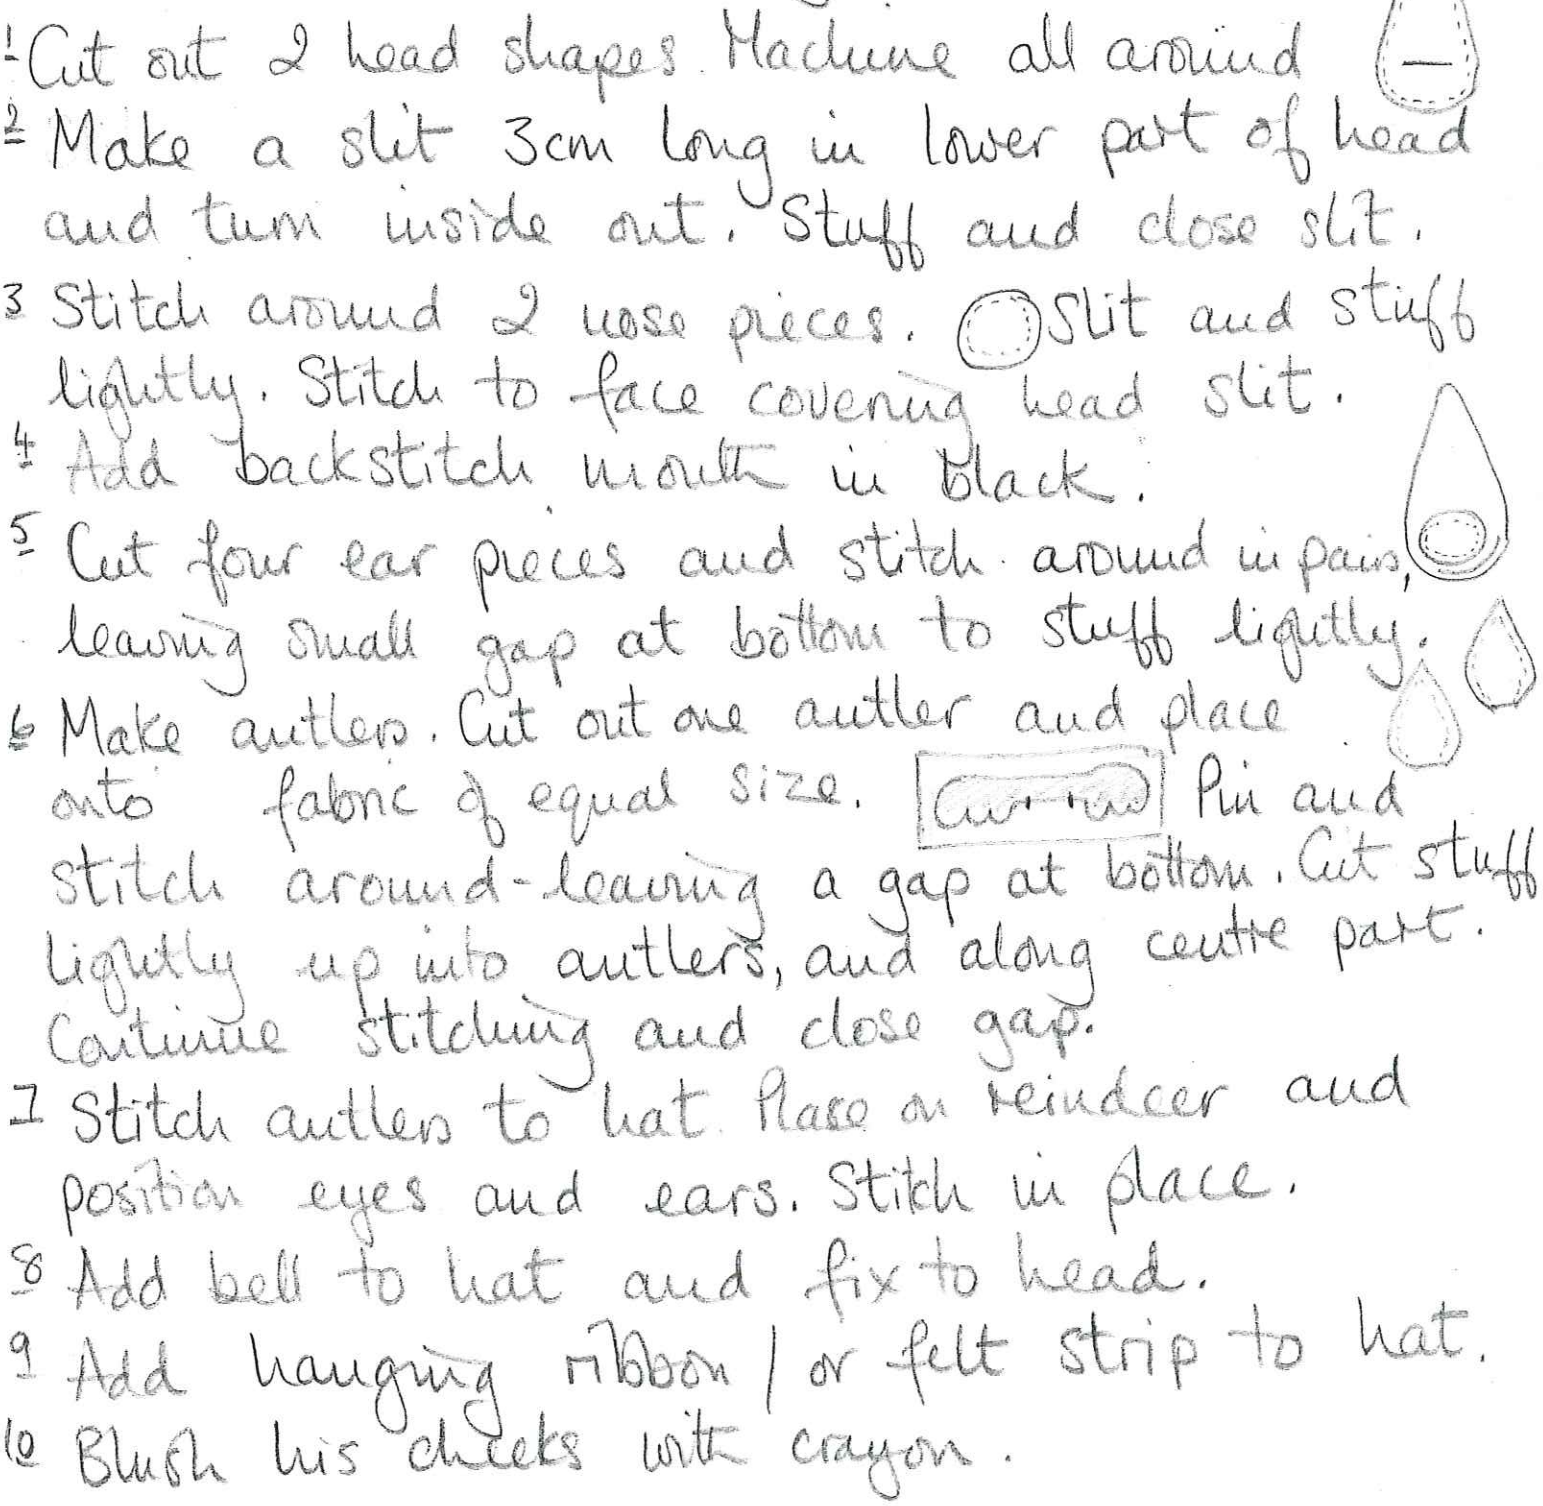 1 Cut out 2 head shapes. Machine all around
2 Make a slit 3cm long in lower part of head
and turn inside out. Stuff and close slit.
3 Stitch around 2 nose pieces. Slit and stuff
lightly. Stitch to face covering head slit.
4 Add backstitch mouth in black.
5 Cut four ear pieces and stitch around in pairs,
leaving small gap at bottom to stuff lightly.
6 Make antlers. Cut out one antler and place
onto fabric of equal size. Pin and
stitch around - leaving a gap at bottom. Cut stuff
lightly up into antlers, and along centre part.
Continue stitching and close gap.
7 Stitch antlers to hat. Place on reindeer and
position eyes and ears. Stitch in place.
8 Add bell to hat and fix to head.
9 Add hanging ribbon / or felt strip to hat.
10 Blush his cheeks with crayon.